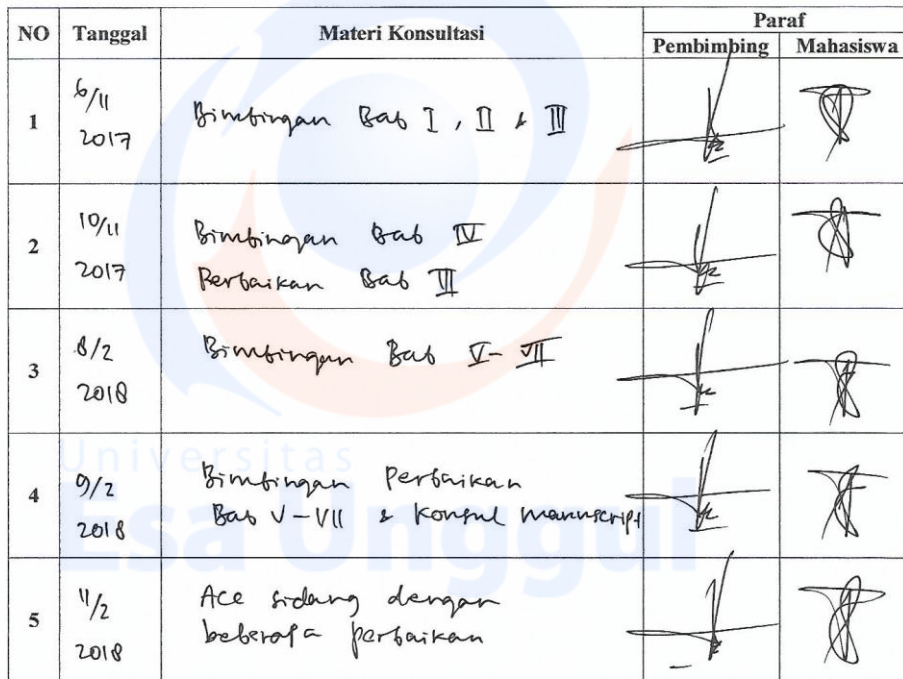 NO Tanggal Materi Konsultasi Paraf
Pembimbing Mahasiswa
1 6/11 2017 Bimbingan Bab I, II & III
2 10/11 2017 Bimbingan Bab IV
Perbaikan Bab III
3 8/2 2018 Bimbingan Bab V- VII
4 9/2 2018 Bimbingan Perbaikan
Bab V-VII & Konsul manuscript
5 11/2 2018 Acc sidang dengan
beberapa perbaikan
Universitas
Esa Unggul